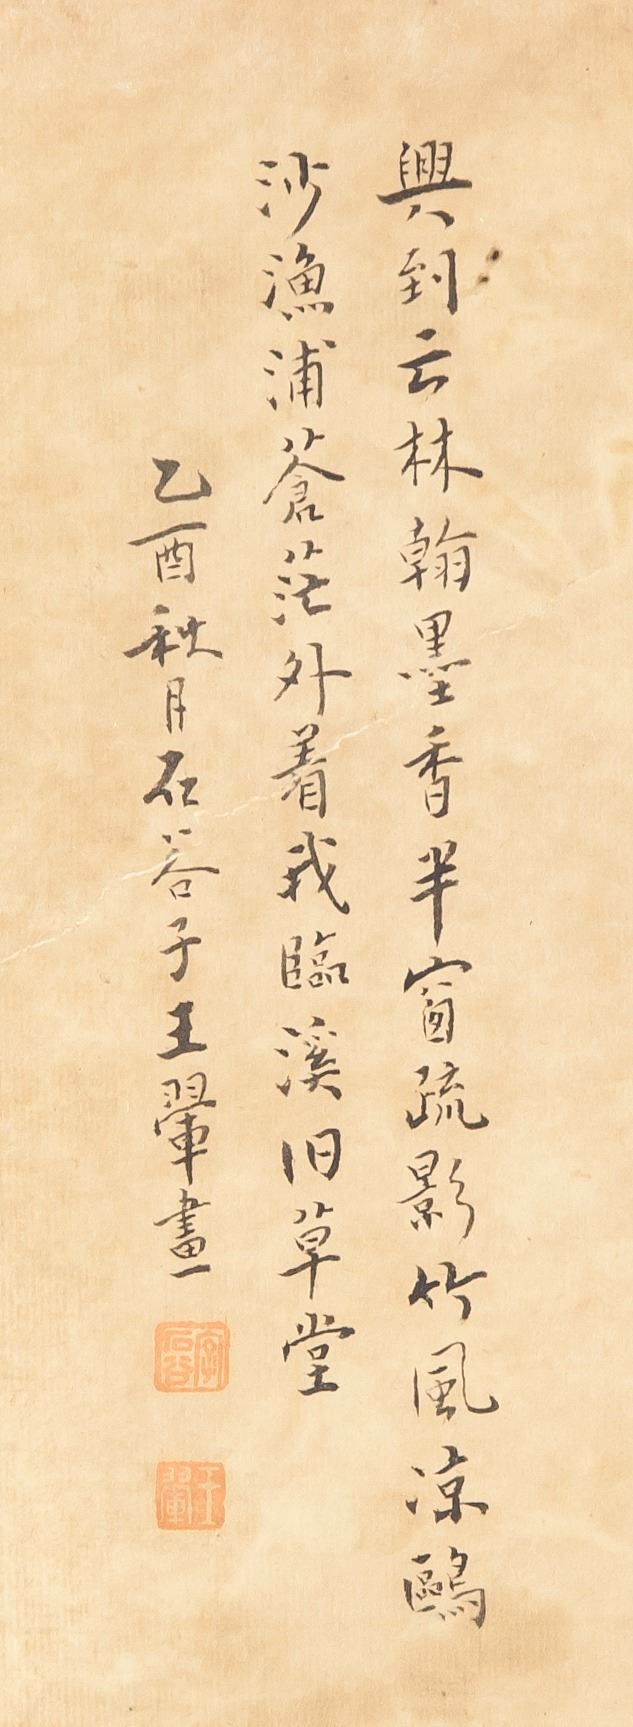 興到云林翰墨香半窗疏影竹風凉鷗
沙漁浦蒼茫外着我臨溪旧草堂
乙酉秋月石谷子王翬畫
字石谷
王翬